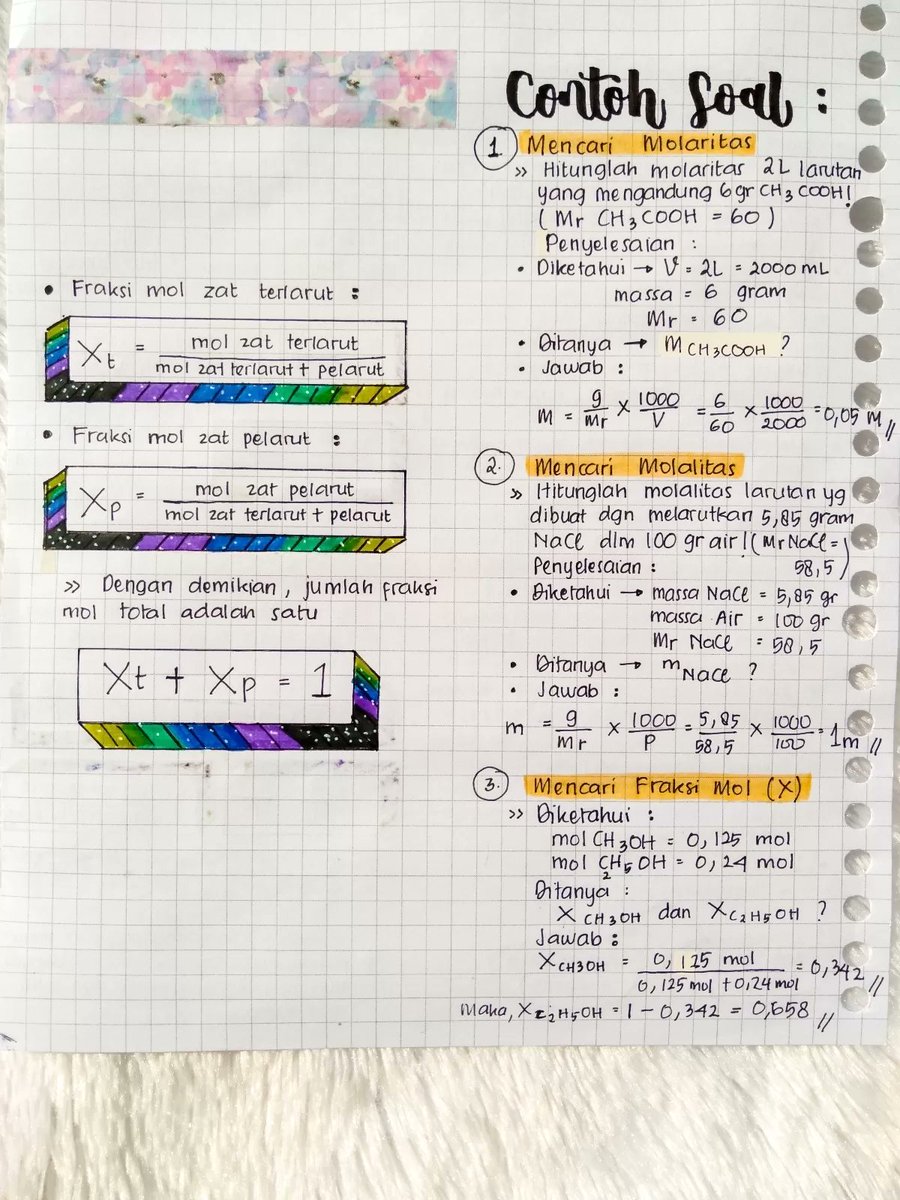 • Fraksi mol zat terlarut :
Xt = mol zat terlarut / mol zat terlarut + pelarut
• Fraksi mol zat pelarut :
Xp = mol zat pelarut / mol zat terlarut + pelarut
>> Dengan demikian, jumlah fraksi
mol total adalah satu
Xt + Xp = 1
Contoh Soal :
1 Mencari Molaritas
>> Hitunglah molaritas 2L larutan
yang mengandung 6gr CH3COOH!
( Mr CH3COOH = 60 )
Penyelesaian :
• Diketahui → V = 2L = 2000 mL
massa = 6 gram
Mr = 60
• Ditanya → M CH3COOH ?
• Jawab :
M = g/Mr × 1000/V = 6/60 × 1000/2000 = 0,05 M //
2. Mencari Molalitas
>> Hitunglah molalitas larutan yg
dibuat dgn melarutkan 5,85 gram
NaCl dlm 100 gr air! ( Mr NaCl =
58,5 )
Penyelesaian :
• Diketahui → massa NaCl = 5,85 gr
massa Air = 100 gr
Mr NaCl = 58,5
• Ditanya → m NaCl ?
• Jawab :
m = g/Mr × 1000/P = 5,85/58,5 × 1000/100 = 1m //
3. Mencari Fraksi Mol (X)
>> Diketahui :
mol CH3OH = 0,125 mol
mol C2H5OH = 0,24 mol
Ditanya :
X CH3OH dan X C2H5OH ?
Jawab :
X CH3OH = 0,125 mol / 0,125 mol + 0,24 mol = 0,342 //
Maka, X C2H5OH = 1 − 0,342 = 0,658 //